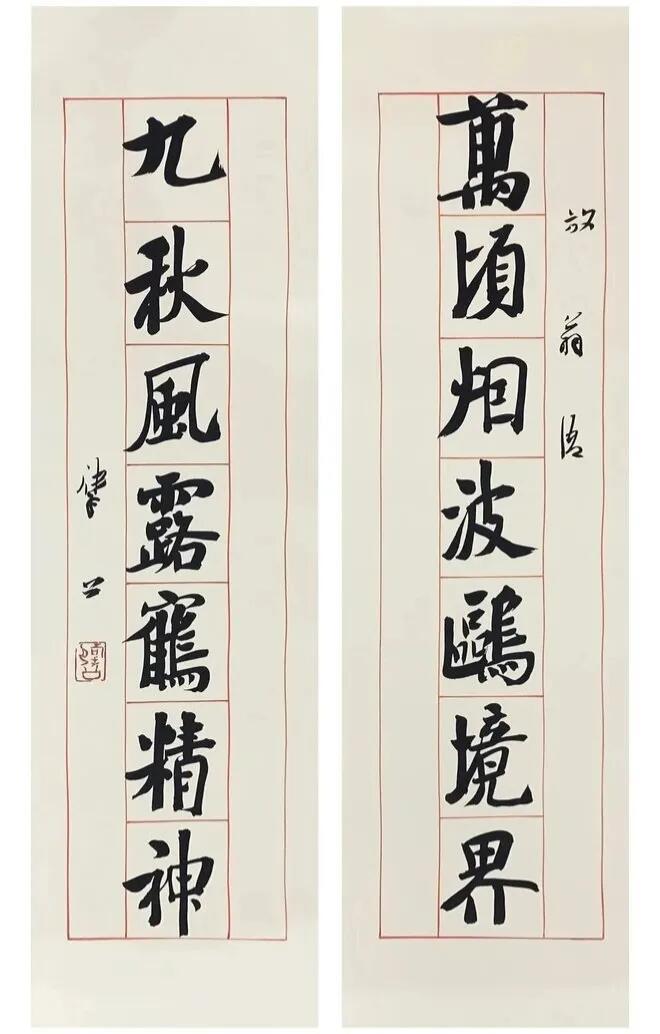 放翁语
萬頃烟波鷗境界
九秋風露鶴精神
肇公